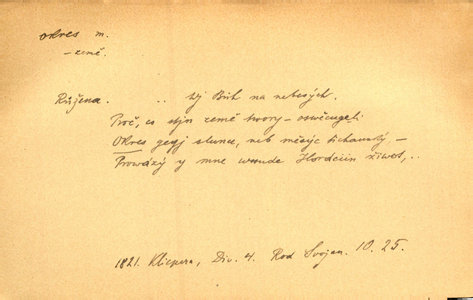 okres m.
– země.
Růžena. .. Ty Bůh na nebesých.
Proč, co stjn země twory – oswěcugeli
Okres gegj slunce, neb měsýc tichauský –
Prowázý y mne wssude Hordeiún žiwot,..
1821. Klicpera, Div. 4. Rod Svojan. 10. 25.